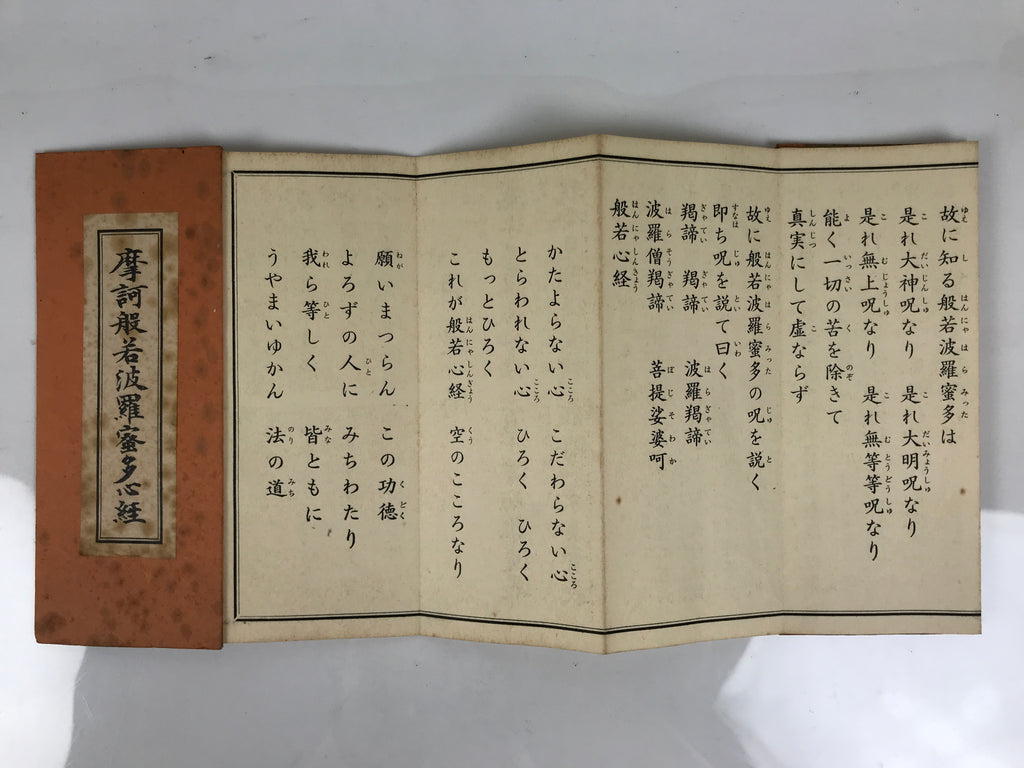 故に知る般若波羅蜜多は
是れ大神呪なり 是れ大明呪なり
是れ無上呪なり 是れ無等等呪なり
能く一切の苦を除きて
真実にして虚ならず
故に般若波羅蜜多の呪を説く
即ち呪を説て曰く
羯諦 羯諦 波羅羯諦
波羅僧羯諦 菩提娑婆呵
般若心経
かたよらない心 こだわらない心
とらわれない心 ひろく ひろく
もっとひろく
これが般若心経 空のこころなり
願いまつらん この功徳
よろずの人に みちわたり
我ら等しく 皆ともに
うやまいゆかん 法の道
摩訶般若波羅蜜多心経